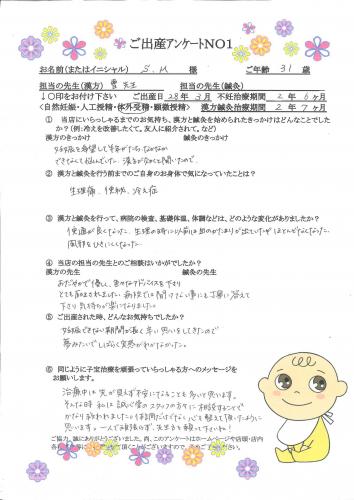 ご出産アンケートNO1
お名前(またはイニシャル) S.M 様 ご年齢 31 歳
担当の先生(漢方) 曹先生 担当の先生(鍼灸)
↓〇印をお付け下さい ご出産日 28年 3月 不妊治療期間 2年6ヶ月
<自然妊娠・人工授精・体外受精・顕微授精> 漢方鍼灸治療期間 2年7ヶ月
① 当店にいらっしゃるまでのお気持ち、漢方と鍼灸を始められたきっかけはどんなことでしたか?(例:冷えを改善したくて。友人に紹介されて。など)
漢方のきっかけ 鍼灸のきっかけ
妊娠を希望して半年がたちなかなか
できなくて悩んでいた。漢方が良いと聞いたので。
② 漢方と鍼灸を行う前までのご自身のお身体で気になっていたことは?
生理痛、便秘、冷え症
③ 漢方と鍼灸を行って、病院の検査、基礎体温、体調などは、どのような変化がありましたか?
便通が良くなった。生理の時に以前は血のかたまりが出ていたがほとんどなくなった。
風邪をひきにくくなった。
④ 当店の担当の先生とのご相談はいかがでしたか?
漢方の先生 鍼灸の先生
おだやかで優しく、色々なアドバイスを下さり
とても励まされました。病院では聞けない事にも丁寧に答えて
下さり気持ちが楽になりました。
⑤ ご出産された時、どんなお気持ちでしたか?
妊娠できない期間が長く辛い思いをしてきたので
夢みたいでしばらく実感がわかなかった。
⑥ 同じように子宝治療を頑張っていらっしゃる方へのメッセージを
お願いします。
治療中は先が見えず不安になることも多いと思います。
そんな時私は誠心堂のスタッフの方々に相談することで
かなり救われました。
思います。一人でお頑張らず、先生方を頼って下さいね!
ご協力、誠にありがとうございました。尚、このアンケートはホームページや店頭・店内